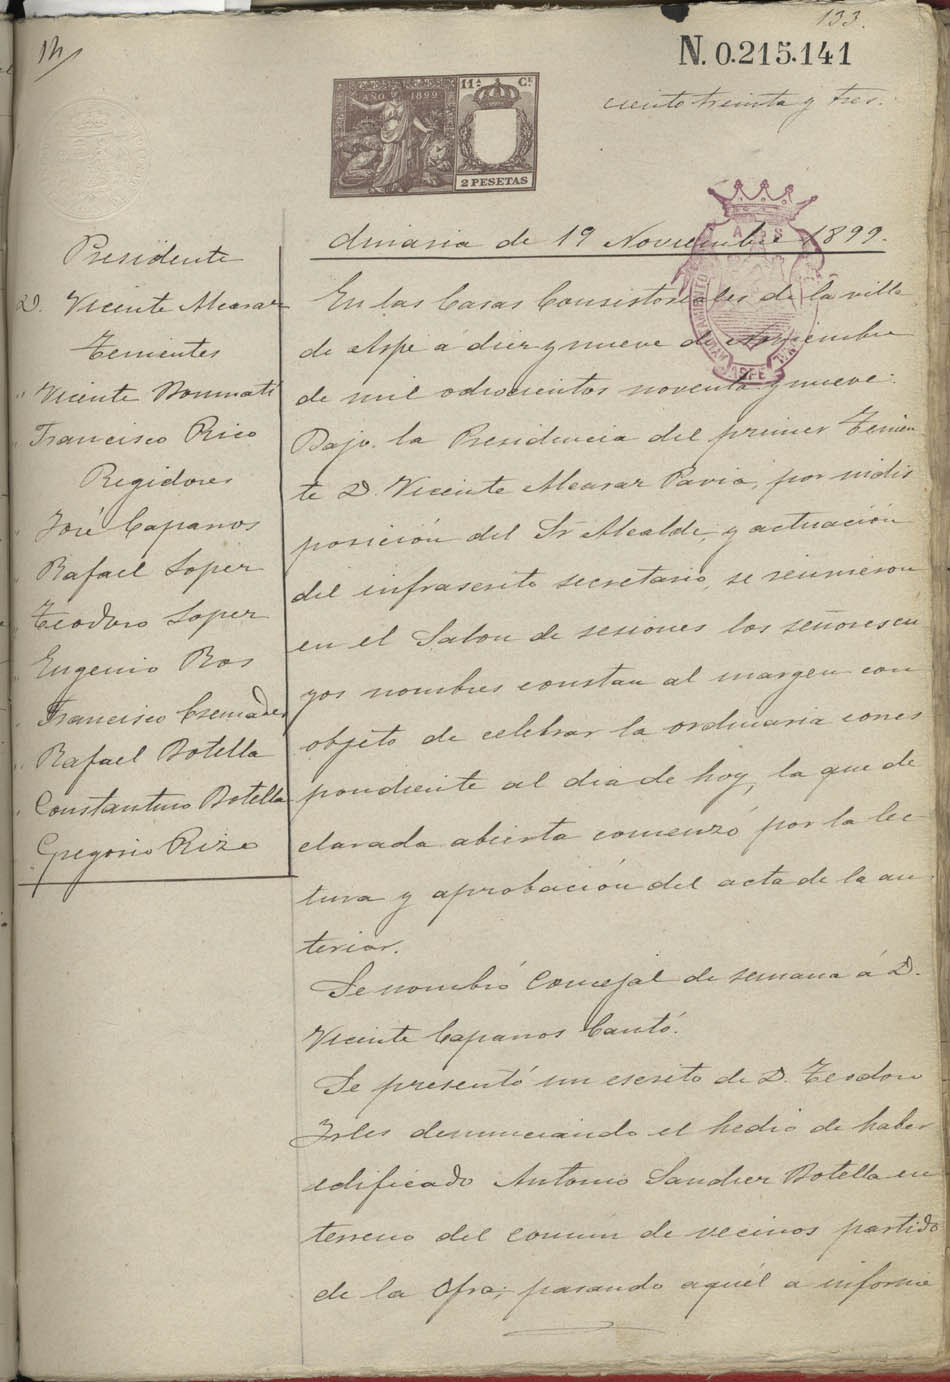 133.
14
N. 0.215.141
AÑO 1899
11ª Cl.
2 PESETAS
ciento treinta y tres.
Presidente
D. Vicente Alcasar
Tenientes
" Vicente Bonmatí
" Francisco Rico
Regidores
" José Caparros
" Rafael Soper
" Teodoro Soper
" Eugenio Ros
" Francisco Cremades
" Rafael Botella
" Constantino Botella
" Gregorio Rizo
dinaria de 19 Noviembre 1899.
En las Casas Consistoriales de la villa
de Aspe á diez y nueve de Noviembre
de mil ochocientos noventa y nueve:
Bajo la Presidencia del primer Tenien
te D. Vicente Alcasar Pavia, por indis
posición del Sr. Alcalde, y actuación
del infrascrito secretario, se reunieron
en el Salon de sesiones los señores cu
yos nombres constan al margen con
objeto de celebrar la ordinaria corres
pondiente al dia de hoy, la que de
clarada abierta comenzó por la lec
tura y aprobación del acta de la an
terior.
Se nombró Concejal de semana á D.
Vicente Caparros Cantó.
Se presentó un escrito de D. Teodoro
Irles denunciando el hecho de haber
edificado Antonio Sancher Botella en
terreno del comun de vecinos partido
de la Ofra; pasando aquél a informe